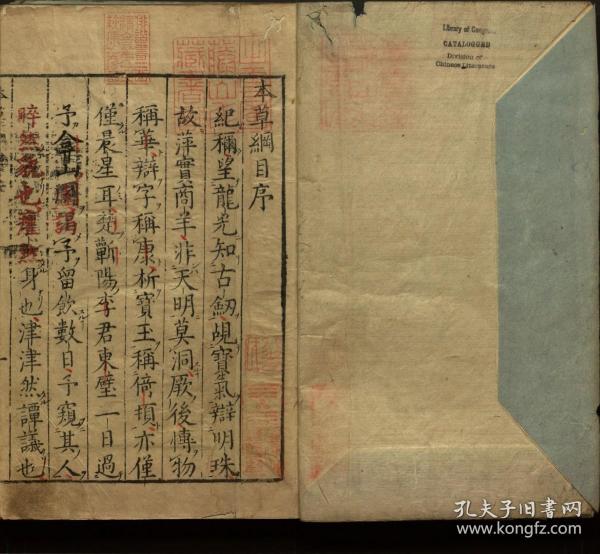 Library of Congress
CATALOGUED
Division of
Chinese Literature
本草綱目序
紀稱望龍光知古劒覘寶氣辯明珠
故萍實商羊非天明莫洞厥後博物
稱華辯字稱康析寶玉稱倚頓亦僅
僅晨星耳楚蘄陽李君東璧一日過
予弇山園謁予留飲數日予窺其人
睟然貌也癯然身也津津然譚議也
孔夫子旧书网
www.kongfz.com